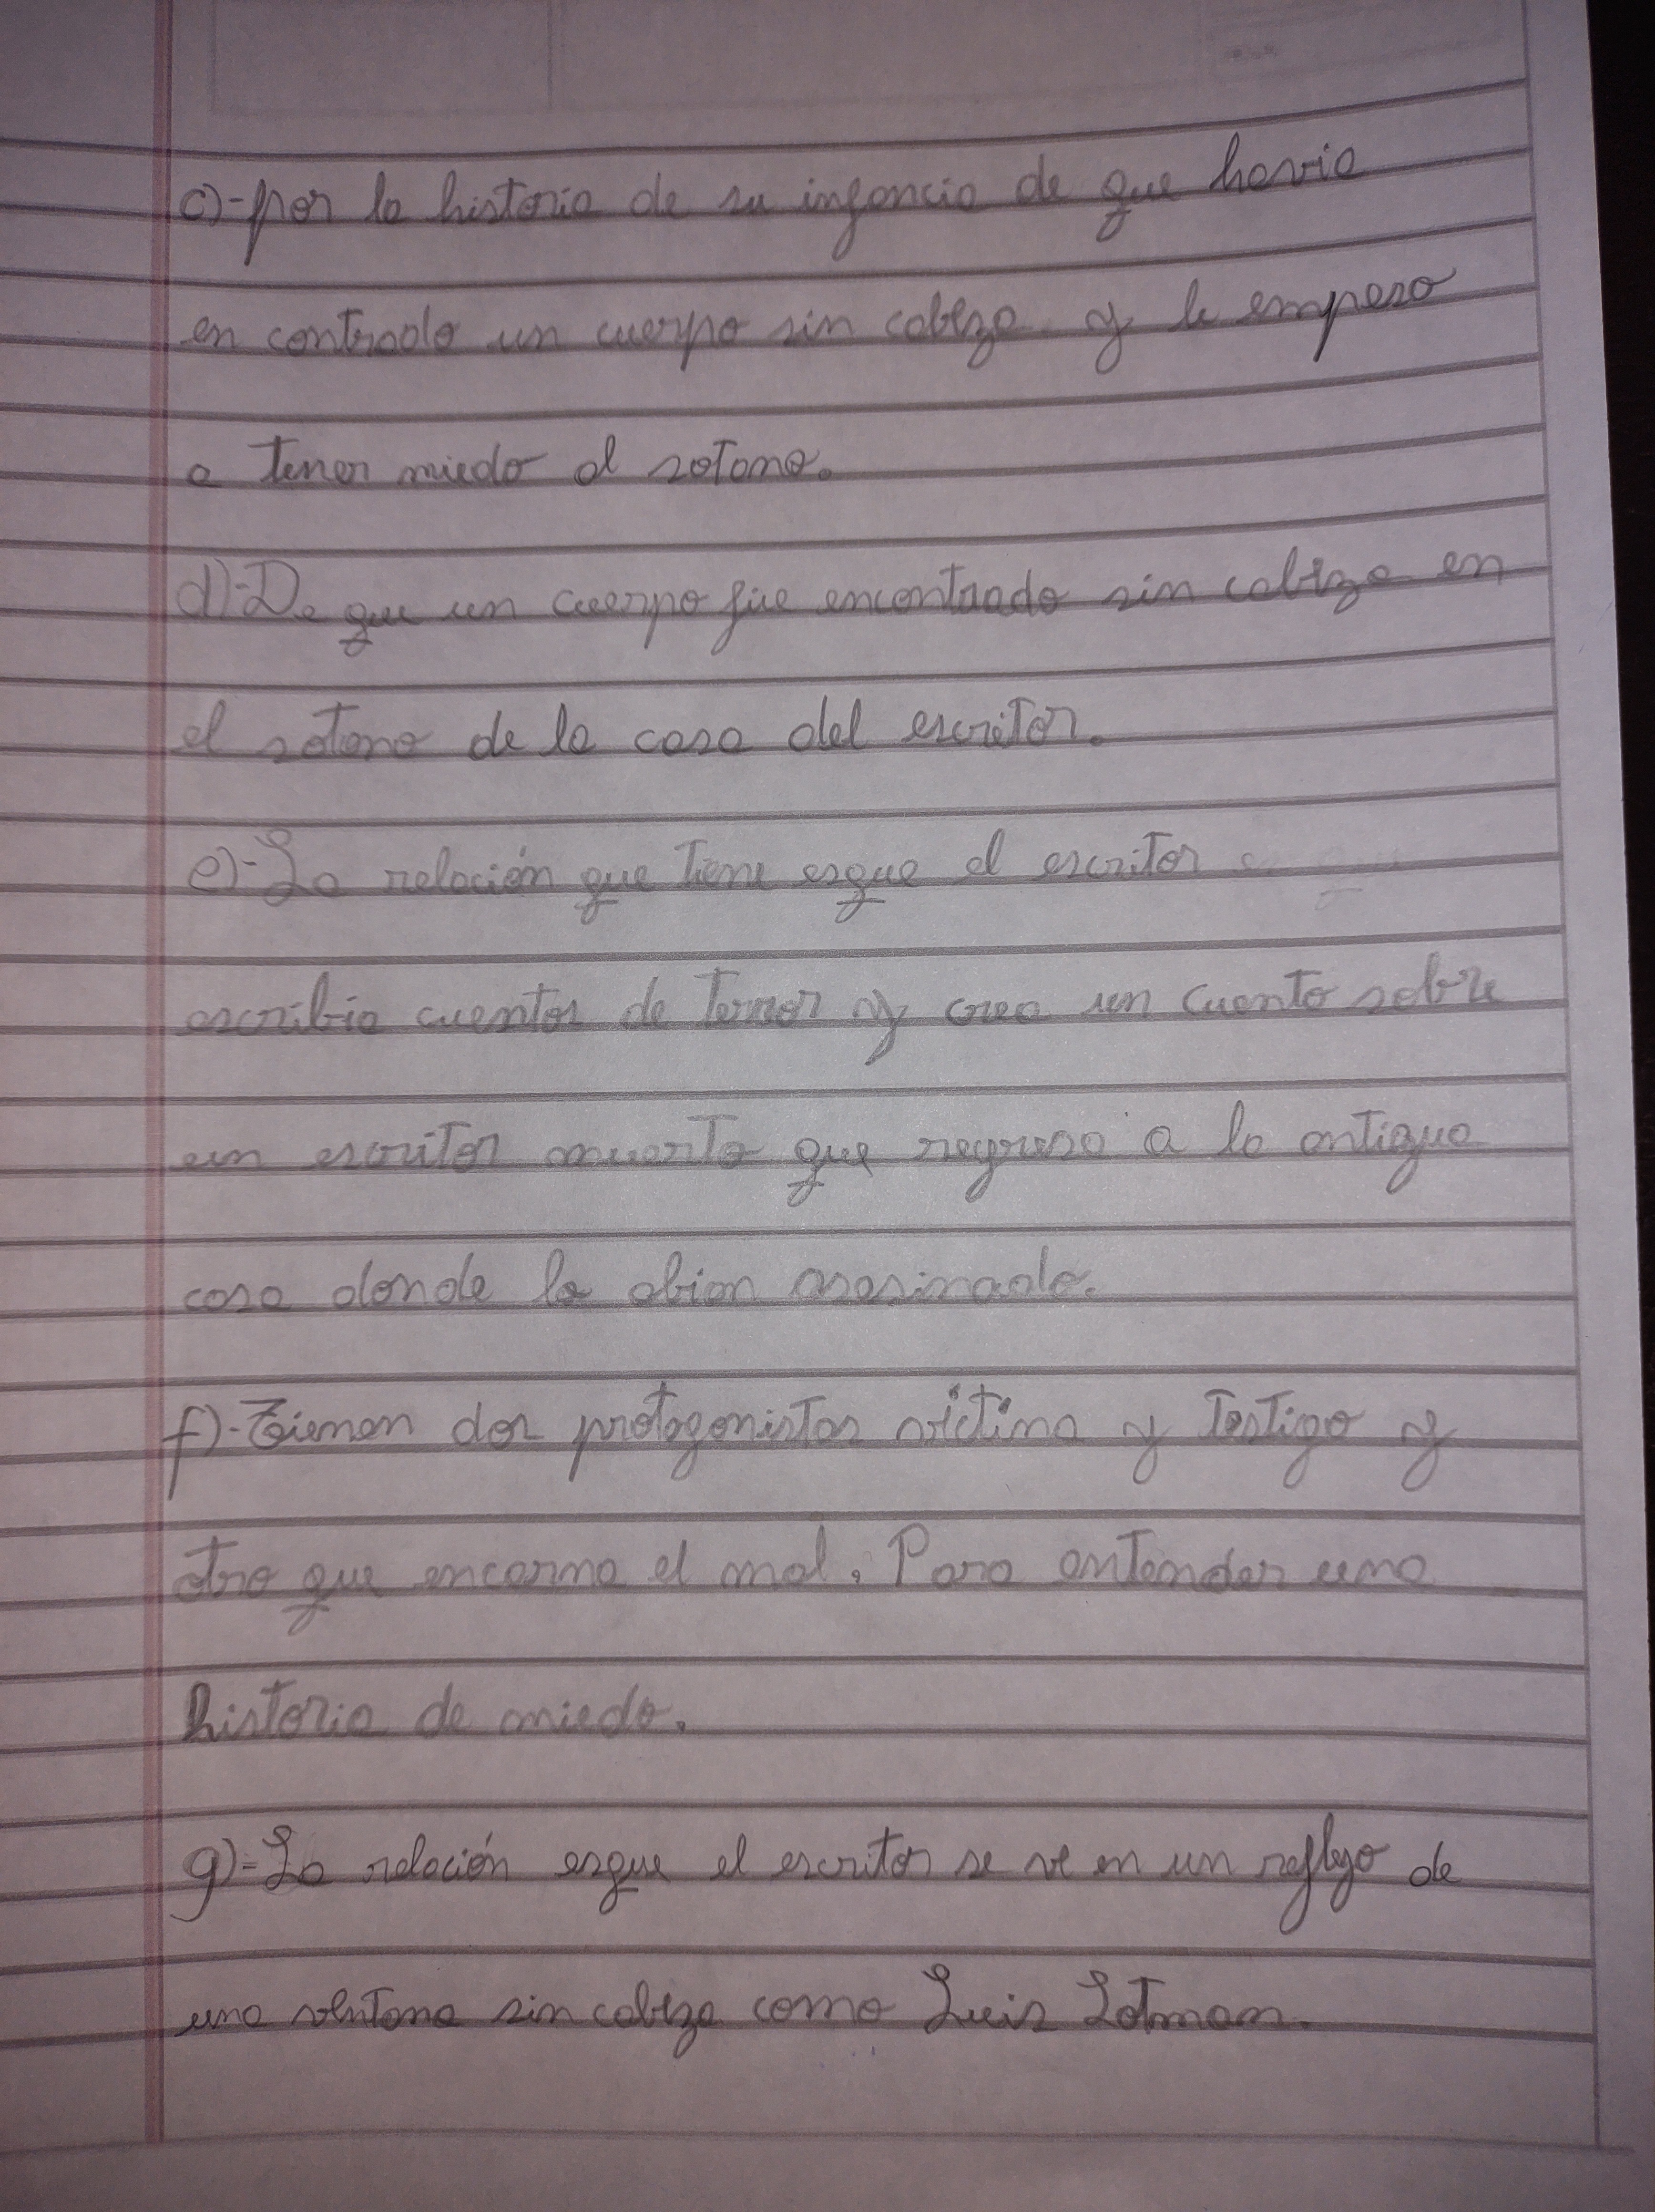 c)-por la historia de su infancia de que havia
en contrado un cuerpo sin cabeza y le empeso
a tener miedo al sotano.
d)-De que un cuerpo fue encontrado sin cabeza en
el sotano de la casa del escritor.
e)-La relación que tiene esque el escritor
escribia cuentos de terror y crea un cuento sobre
un escritor muerto que regresa a la antigua
casa donde lo abian asesinado.
f)-Tienen dos protagonistas víctima y testigo y
otro que encarna el mal. Para entender una
historia de miedo.
g)-La relación esque el escritor se ve en un reflejo de
una ventana sin cabeza como Luis Lotman.